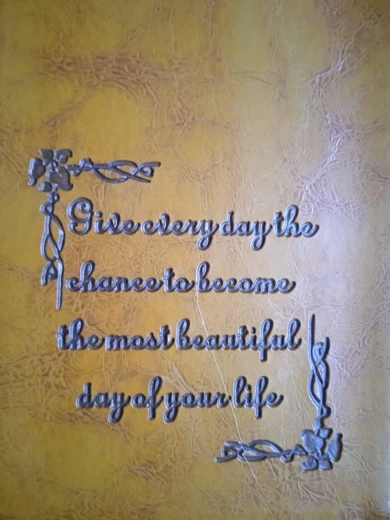 Give every day the
chance to become
the most beautiful
day of your life